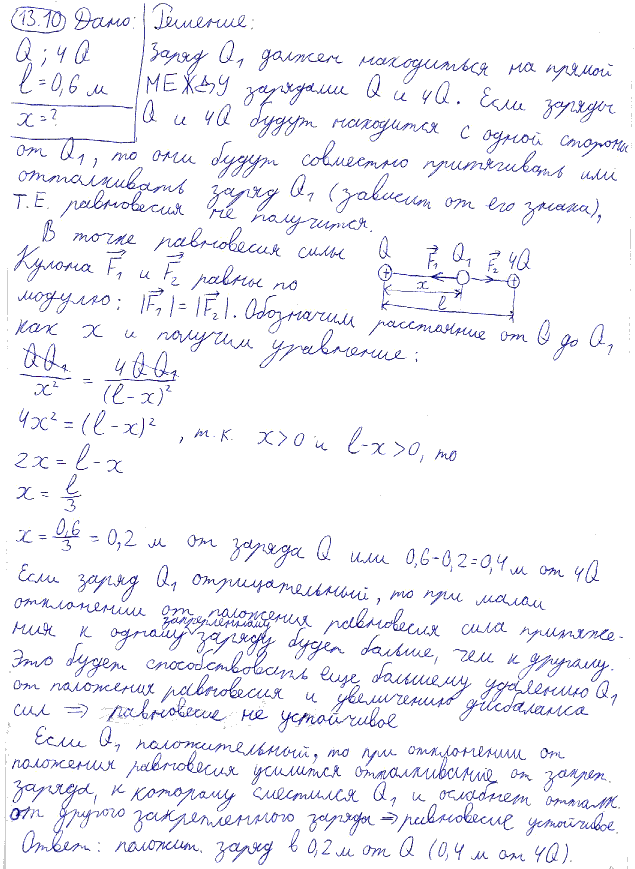 13.10 Дано: Решение:
Q ; 4Q Заряд Q₁ должен находиться на прямой
l = 0,6 м МЕЖДУ зарядами Q и 4Q. Если заряды
x = ? Q и 4Q будут находится с одной стороны
от Q₁, то они будут совместно притягивать или
отталкивать заряд Q₁ (зависит от его знака),
Т.Е. равновесия не получится.
В точке равновесия силы
Кулона F⃗₁ и F⃗₂ равны по
модулю: |F⃗₁| = |F⃗₂|. Обозначим расстояние от Q до Q₁
Q F⃗₁ Q₁ F⃗₂ 4Q
+ +
x
l
как x и получим уравнение:
QQ₁/x² = 4QQ₁/(l-x)²
4x² = (l-x)² , т.к. x>0 и l-x>0, то
2x = l-x
x = l/3
x = 0,6/3 = 0,2 м от заряда Q или 0,6-0,2=0,4 м от 4Q
Если заряд Q₁ отрицательный, то при малом
отклонении от положения равновесия сила притяже-
ния к одному закрепленному заряду будет больше, чем к другому.
Это будет способствовать еще большему удалению Q₁
от положения равновесия и увеличению дисбаланса
сил ⇒ равновесие не устойчивое
Если Q₁ положительный, то при отклонении от
положения равновесия усилится отталкивание от закреп.
заряда, к которому сместился Q₁ и ослабнет отталк.
от другого закрепленного заряда ⇒ равновесие устойчивое.
Ответ: положит. заряд в 0,2 м от Q (0,4 м от 4Q).